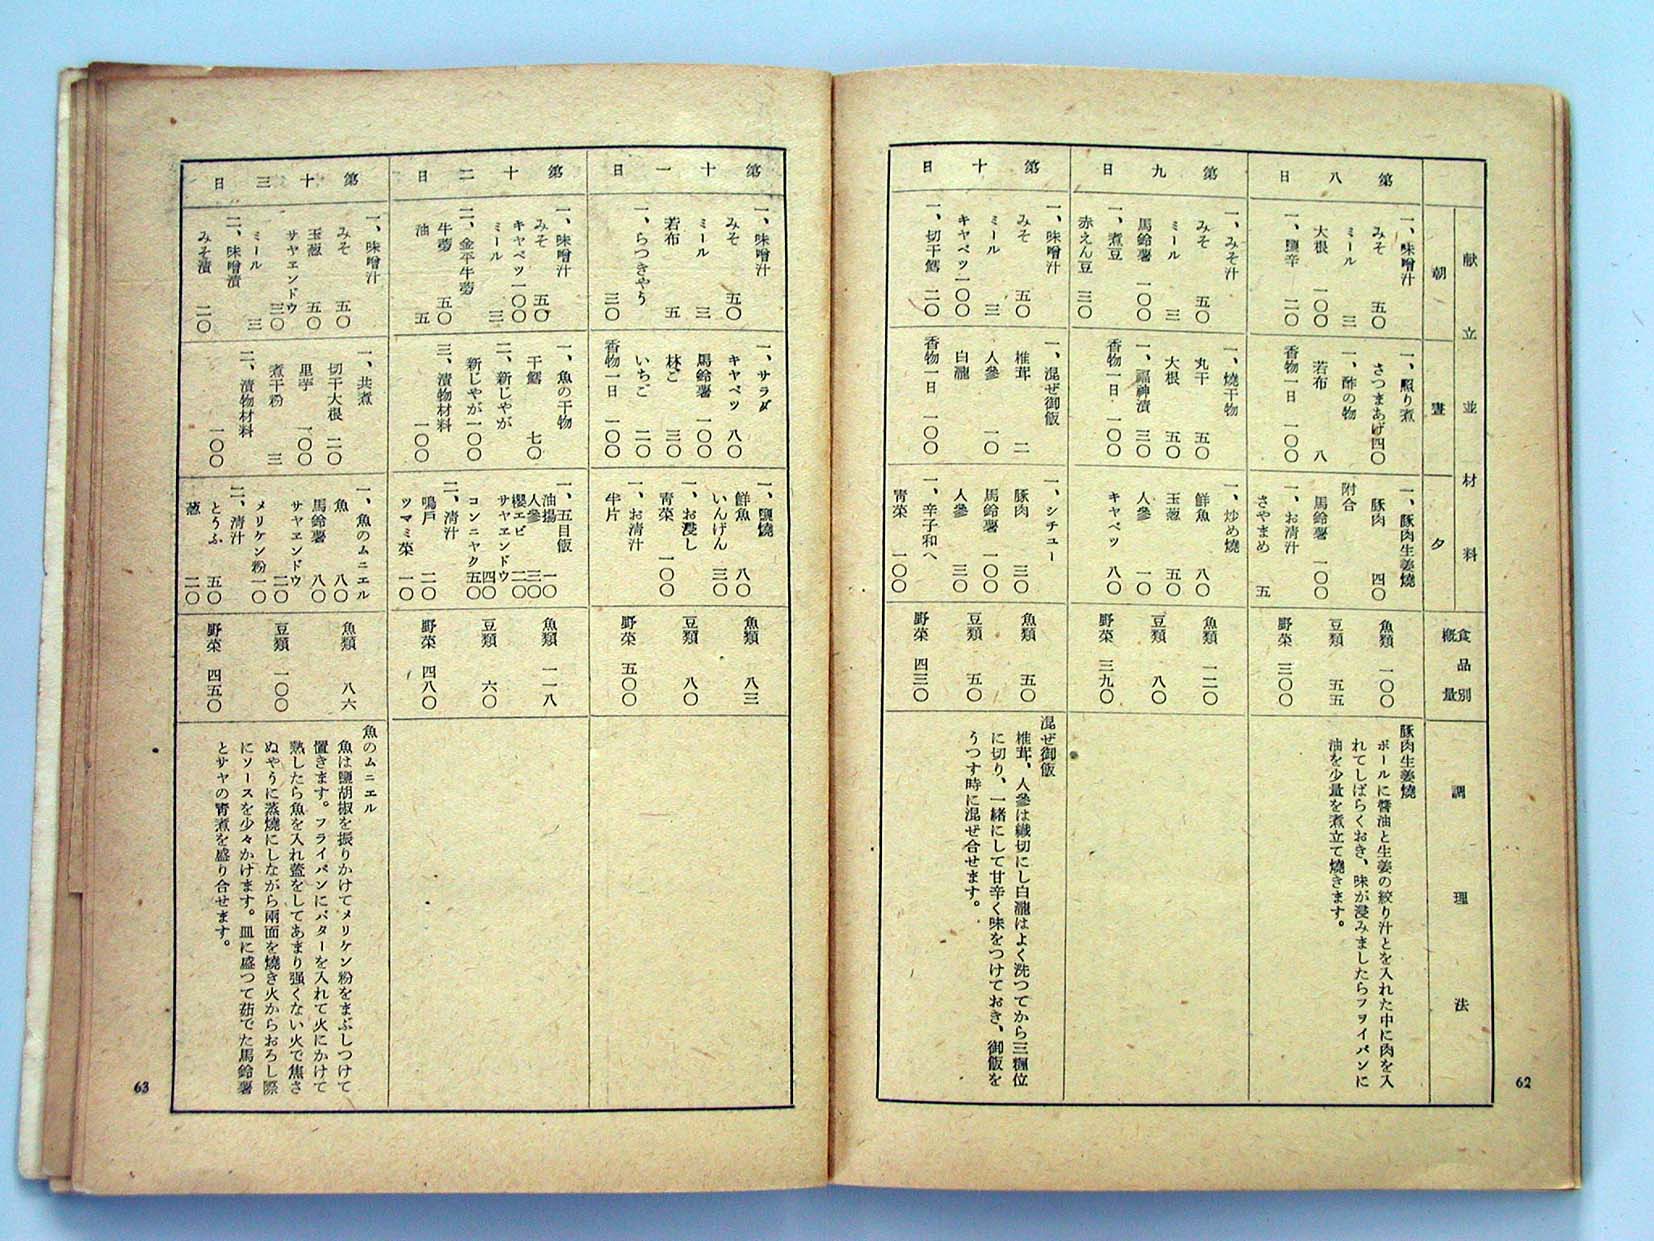 献立並材料
朝
晝
夕
食品別概量
調理法
第八日
一、味噌汁
みそ 五〇
ミール 三
大根 一〇〇
一、鹽辛 二〇
一、照り煮
さつまあげ 四〇
一、酢の物
若布 八
香物一日 一〇〇
一、豚肉生姜燒
豚肉 四〇
附合
馬鈴薯 一〇〇
一、お清汁
さやまめ 五
魚類 一〇〇
豆類 五五
野菜 三〇〇
豚肉生姜燒
ボールに醬油と生姜の絞り汁とを入れた中に肉を入
れてしばらくおき、味が浸みましたらフライパンに
油を少量を煮立て燒きます。
第九日
一、みそ汁
みそ 五〇
ミール 三
馬鈴薯 一〇〇
一、煮豆
赤えん豆 三〇
一、燒干物
丸干 五〇
大根 五〇
一、福神漬 三〇
香物一日 一〇〇
一、炒め燒
鮮魚 八〇
玉葱 五〇
人參 一〇
キャベツ 八〇
魚類 一二〇
豆類 八〇
野菜 三九〇
第十日
一、味噌汁
みそ 五〇
ミール 三
キャベツ 一〇〇
一、切干鱈 二〇
一、混ぜ御飯
椎茸 二
人參 一〇
白瀧
香物一日 一〇〇
一、シチュー
豚肉 三〇
馬鈴薯 一〇〇
人參 三〇
一、辛子和へ
靑菜 一〇〇
魚類 五〇
豆類 五〇
野菜 四三〇
混ぜ御飯
椎茸、人參は纖切にし白瀧はよく洗つてから三糎位
に切り、一緒にして甘辛く味をつけておき、御飯を
うつす時に混ぜ合せます。
62
第十一日
一、味噌汁
みそ 五〇
ミール 三
若布 五
一、らつきやう 三〇
一、サラダ
キャベツ 八〇
馬鈴薯 一〇〇
林ご 三〇
いちご 二〇
香物一日 一〇〇
一、鹽燒
鮮魚 八〇
いんげん 三〇
一、お浸し
靑菜 一〇〇
一、お清汁
半片
魚類 八三
豆類 八〇
野菜 五〇〇
第十二日
一、味噌汁
みそ 五〇
キャベツ 一〇〇
ミール 三
二、金平牛蒡
牛蒡 五〇
油 五
一、魚の干物
干鱈 七〇
二、新じやが
新じやが 一〇〇
三、漬物材料 一〇〇
一、五目飯
油揚 一〇
人參 三〇
櫻エビ 二〇
サヤエンドウ 四〇
コンニャク 五〇
二、清汁
鳴戶 二〇
ツマミ菜 一〇
魚類 一一八
豆類 六〇
野菜 四八〇
第十三日
一、味噌汁
みそ 五〇
玉葱 五〇
サヤエンドウ 三〇
ミール 三
二、味噌漬
みそ漬 二〇
一、共煮
切干大根 二〇
里芋 一〇〇
煮干粉 三
二、漬物材料 一〇〇
一、魚のムニエル
魚 八〇
馬鈴薯 八〇
サヤエンドウ 二〇
メリケン粉 一〇
二、清汁
とうふ 五〇
葱 二〇
魚類 八六
豆類 一〇〇
野菜 四五〇
魚のムニエル
魚は鹽胡椒を振りかけてメリケン粉をまぶしつけて
置きます。フライパンにバターを入れて火にかけて
熱したら魚を入れ蓋をしてあまり强くない火で焦さ
ぬやうに蒸燒にしながら兩面を燒き火からおろし際
にソースを少々かけます。皿に盛つて茹でた馬鈴薯
とサヤの靑煮を盛り合せます。
63